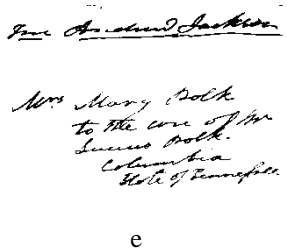 from Andrew Jackson
Mrs Mary Polk
to the care of Mr
Lucius Polk.
Columbia
State of Tennessee
e